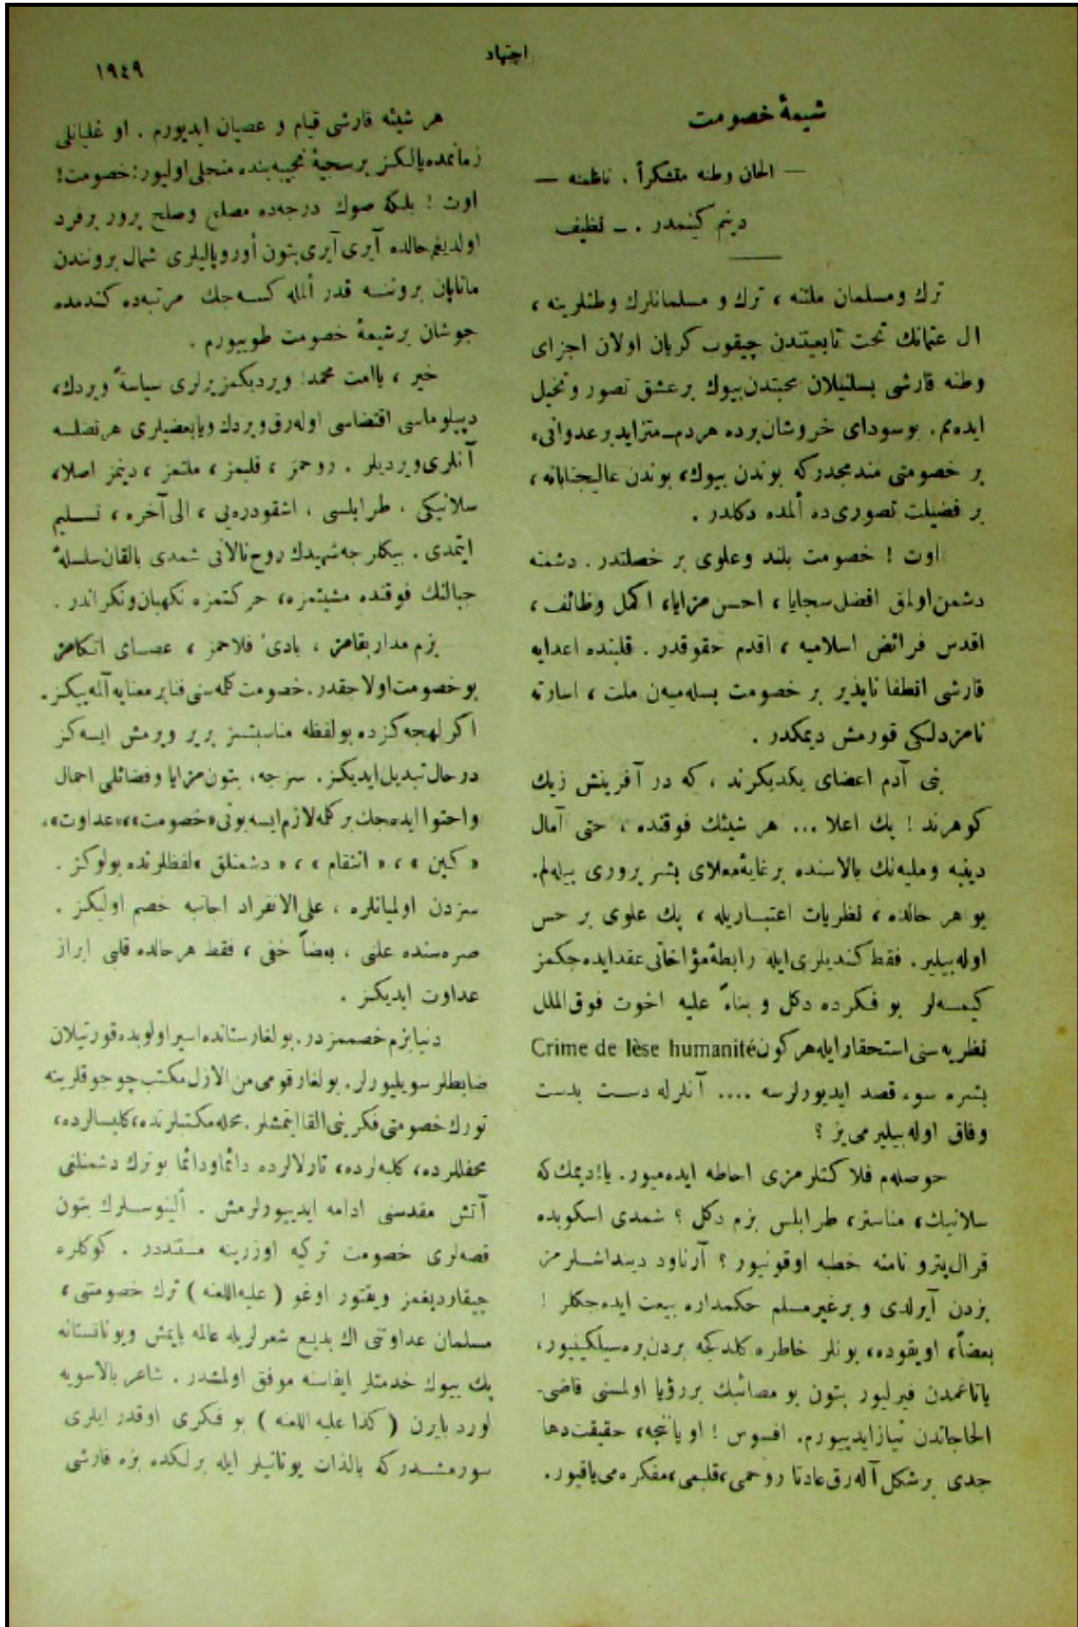 ١٩٤٩
اجتهاد
شيمهٔ خصومت
— الحان وطنه متشكراً . ناظمنه —
دينم كينمدر . ــ نظيف
ترك ومسلمان ملتنه ، ترك و مسلمانلرك وطنلرينه ،
ال عثمانك تحت تابعيتندن چيقوب كريان اولان اجزای
وطنه قارشی بسلنيلان محبتدن بيوك بر عشق تصور وتخيل
ايده‌مم. بوسودای خروشان برده هردم ـ متزايد بر عدوانی،
بر خصومتی مندمجدركه بوندن بيوك، بوندن عاليجنابانه ،
بر فضيلت تصوری ده ألمده دكلدر .
اوت ! خصومت بلند وعلوی بر خصلتدر . دشمنه
دشمن اولمق افضل سجايا ، احسن مزايا، اكمل وظائف ،
اقدس فرائض اسلاميه ، اقدم حقوقدر . قلبنده اعدايه
قارشی انطفا ناپذير بر خصومت بسله‌ميه‌ن ملت ، اسارته
نامزدلكی قورمش ديمكدر .
بنی آدم اعضای يكديكرند ، كه در آفرينش زيك
كوهرند ! پك اعلا ... هر شيئك فوقنده ، حتی آمال
دينيه ومليه‌نك بالاسنده بر غايهٔ معلای بشر پروری بيله‌لم.
بو هر حالده ، نظريات اعتباريله ، پك علوی بر حس
اوله‌بيلير . فقط كنديلری ايله رابطهٔ مؤاخاتی عقد ايده‌جكمز
كيمسه‌لر بو فكرده دكل و بناءً عليه اخوت فوق الملل
نظريه سنی استحقار ايله هركون Crime de lèse humanité
بشره سوء قصد ايديورلرسه .... آنلرله دست بدست
وفاق اوله‌بيلير می يز ؟
حوصله‌م فلاكتلرمزی احاطه ايده‌ميور . يا! ديمك كه
سلانيك، مناستر، طرابلس بزم دكل ؟ شمدی اسكوبده
قرال پترو نامنه خطبه اوقونيور ؟ آرناود دينداشلرمز
بزدن آيرلدی و بر غير مسلم حكمداره بيعت ايده‌جكلر !
بعضاً، اويقوده، بونلر خاطره كلدكجه بردن بره سيلكينيور،
ياتاغمدن فيرليور بتون بو مصائبك بر رؤيا اولمسنی قاضی‌ـ
الحاجاتدن نياز ايدييورم. افسوس ! اويانجه، حقيقت دها
جدی بر شكل آله‌رق عادتا روحمی، قلبمی، مفكره‌می ياقيور.
هر شيئه قارشی قيام و عصيان ايديورم . او غليانلی
زمانمده يالكز بر سجيهٔ نجيبه بنده متجلی اوليور: خصومت!
اوت ! بلكه صوك درجه‌ده مصلح وصلح پرور بر فرد
اولديغم حالده آيری آيری بتون أوروپاليلری شمال بروننندن
ماتاپان بروننه قدر ألمله كسه‌جك مرتبه‌ده كندمده
جوشان بر شيمهٔ خصومت طوييورم .
خير ، ياامت محمد! ويرديكمز يرلری سياسةً ويردك،
ديپلوماسی اقتضاسی اوله‌رق ويردك ويابعضيلری هر نصلسه
آنلری ويرديلر . روحمز ، قلبمز ، ملتمز ، دينمز اصلا،
سلانيكی ، طرابلسی ، اشقودره‌يی ، الی آخره ، تسليم
ايتمدی . بيكلرجه شهيدك روح نالانی شمدی بالقان سلسلهٔ
جبالنك فوقنده مشيتمزه، حركتمزه نكهبان ونكراندر .
بزم مدار بقامز ، بادئ فلاحمز ، عصای اتكامز
بو خصومت اولاجقدر. خصومت كله‌سنی فنا بر معنايه آلمه‌ييكز.
اكر لهجه كزده بو لفظه مناسبتسز بر ير ويرمش ايسه‌كز
درحال تبديل ايديكز. سزجه، بتون مزايا وفضائلی اجمال
واحتوا ايده‌جك بر كله لازم ايسه بونی «خصومت»، «عداوت»،
« كين » ، « انتقام » ، « دشمنلق » لفظلرنده بولوكز .
سزدن اولميانلره ، علی الانفراد اجانبه خصم اوليكز .
صره‌سنده علنی ، بعضاً خفی ، فقط هر حالده قلبی ابراز
عداوت ايديكز .
دنيا بزم خصممز در. بولغارستانده اسير اولوبده قورتيلان
ضابطلر سويليورلر. بولغار قومی من الازل مكتب چوجوقلرينه
تورك خصومتی فكرينی القا ايتمشلر. محله مكتبلرنده، كليسالرده،
محفللرده، كلبه‌لرده، تارلالرده دائما ودائما بو ترك دشمنلغی
آتش مقدسنی ادامه ايدييورلرمش . ألينوسلرك بتون
قصه‌لری خصومت تركيه اوزرينه مستنددر . كوكلره
چيقارديغمز ويقتور اوغو ( عليه اللعنه ) ترك خصومتنی ،
مسلمان عداوتنی اك بديع شعرلريله عالمه يايمش ويونانستانه
پك بيوك خدمتلر ايفاسنه موفق اولمشدر . شاعر بالاسويه
لورد بايرن ( كذا عليه اللعنه ) بو فكری اوقدر ايلری
سورمشدركه بالذات يونانيلر ايله برلكده بزه قارشی